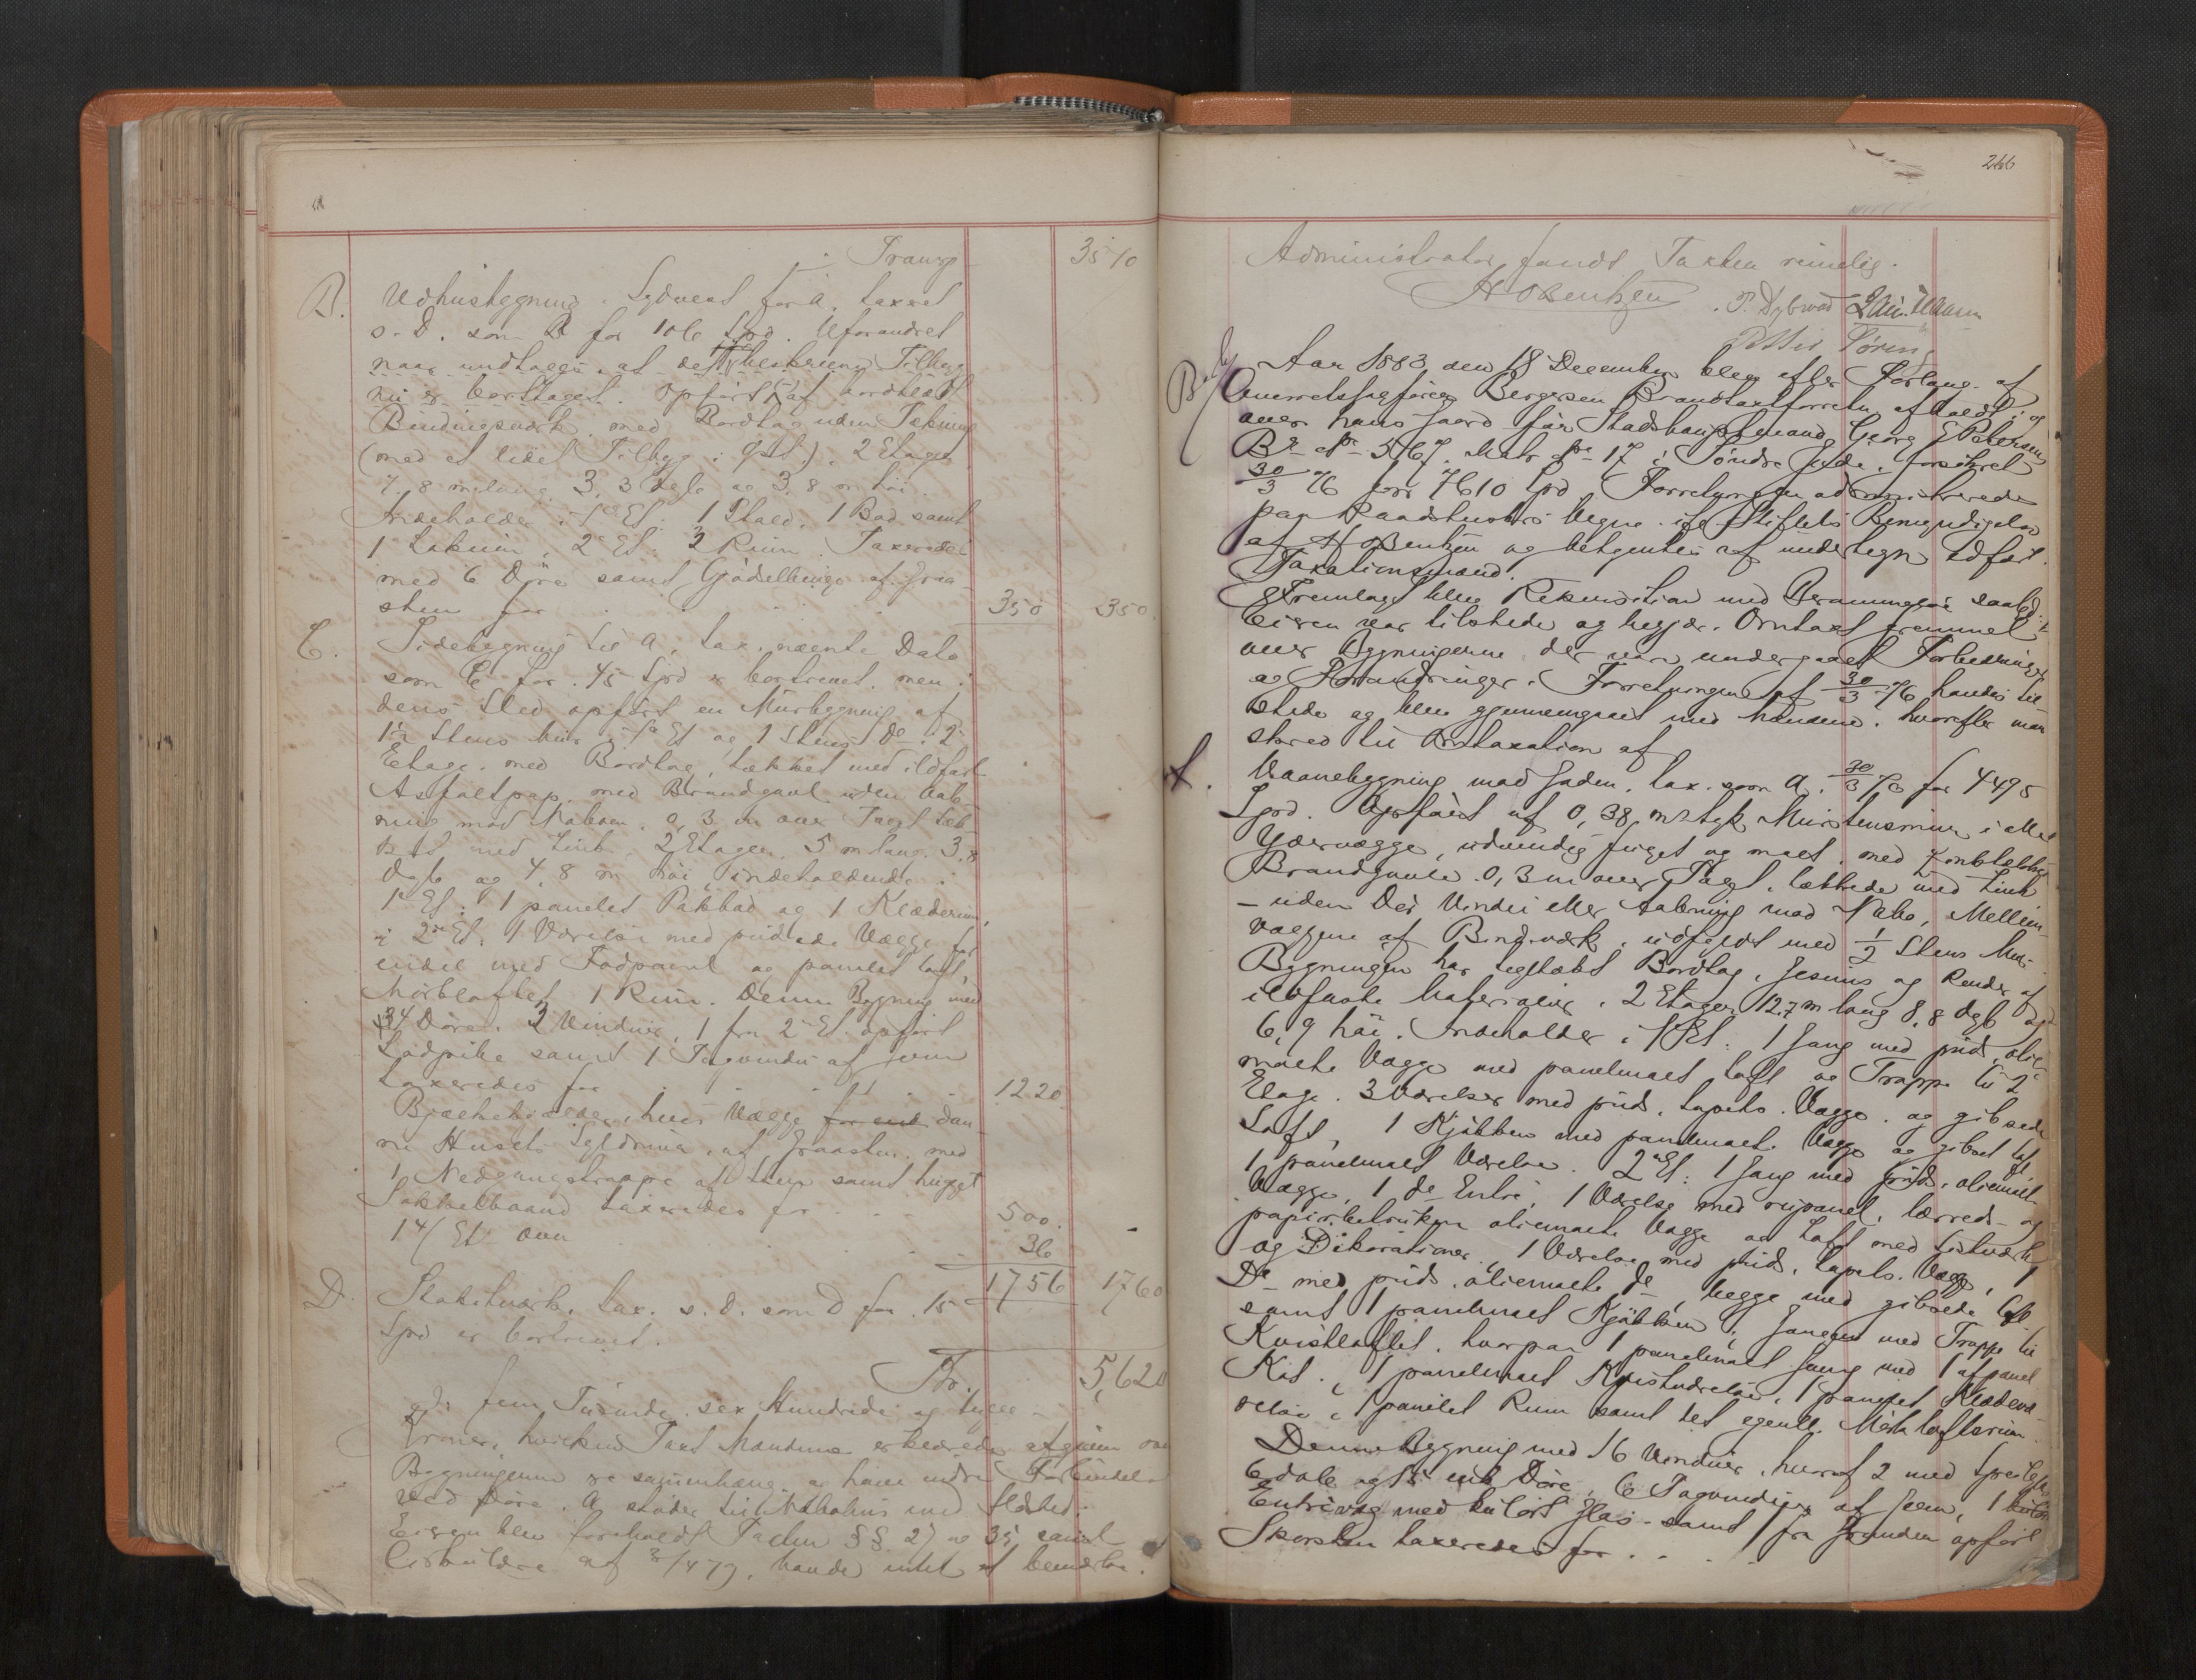 Transp 3510
B. Udhusbygning Sydvest for A, taxeret
s. D. som B for 106 Spd. Uforandret
naar undtages, at det beskrevne Tilbyg
nu er borttaget. Opført af bordklædt
Bindingsværk med Bordtag uden Tækning
(med et lidet Tilbyg i ). 2 Etager
7,8 m lang, 3,3 dyb og 3,8 m høi
Indeholder i 1ste Et: 1 Stald, 1 Bod samt
1 Lokum, 2den Et: 2 Rum. Taxeredes
med 6 Døre samt Gjødelbinge af Graa
sten for 350 350.
C. Sidebygning til A, tax. nævnte Dato
som C for 45 Spd er bortrevet, men i
dens Sted opført en Murbygning af
1½ Stens Mur i 1ste Et og 1 Stens Do i 2den
Etage, med Bordtag, tækket med ildfast
Asfaltpap, med Brandgavl uden Aab-
ning mod Naboen, 0,3 m over Taget tæk-
ket med Zink. 2 Etager, 5 m lang, 3,8
dyb og 4,8 m høi, indeholdende i
1ste Et: 1 panelet Pakbod og 1 Klæderum,
i 2den Et: 1 Værelse med pudsede Vægge for
endel med Fodpanel og panelet Loft,
Mørkloftet 1 Rum. Denne Bygning med
4 Døre, 3 Vinduer, 1 fra 2den Et. opført
Lodpibe samt 1 Tagvindu af Jern
taxeredes for 1220.
Bjælkekjælder, hvis Vægge for end dan-
ne Husets Syldmur, af Graasten, med
1 Nedgangstrappe af Sten samt hugget
Sokkelbaand taxeredes for 500.
1 4/Et Ovn 36
1756 1760
D. Stakitværk, tax. s. D. som D for 15
Spd er bortrevet.
Kr. 5,620
er: fem Tusinde, sex Hundrede og tyve
Kroner, hvilken Taxt Mændene erklærede afgiven over
Bygningerne i sammenhæng og have indre Forbindelse
ved Døre. A støder til Nabohus med Ildsted.
Eieren blev foreholdt Taclov §§ 27 og 35 samt
Cirkulære af 3/4 79, havde intet at bemærke.
266
Administrator fandt Taxten rimelig.
H Bentzen P. Dybwad
Petter Søren
Aar 1883 den 18 December blev efter Forlang. af
Overretssagfører Bergersen Brandtaxtforretn. afholdt i og
over hans Gaard før Stadshauptmand Georg E Petersens
Br No 567, Matr No 17 i Søndre Gade, forsikret
30/3 76 for 7610 Spd. Forretningen administreredes
paa Raadstuens Vegne ifl Stiftets Bemyndigelse
af H Bentzen og betjentes af undertegn. edfæst.
Taxationsmænd.
Fremlagt blev Rekvisition med Berammelse saalyd:
Eieren var tilstede og begjær. Omtaxt fremmet
over Bygningerne, der vare undergaaet Forbedringer
og Forandringer. Forretningen af 30/3 76 havdes til-
stede og blev gjennemgaaet med Mændene, hvorefter man
skred til Omtaxation af
A. Vaanebygning mod Gaden, tax. som A. 30/3 76 for 4495
Spd. Opført af 0,38 m tyk Murstensmur i alle
Ydervægge, udvendig fuget og malet, med zinktækket
Brandgavle 0,3 m over Taget, tækkede med Zink
- uden Dør Vindu eller Aabning mod Nabo, Mellem-
væggene af Bindværk, udfyldt med 1/2 Stens Mur.
Bygningen har teglstækt Bordtag, Gesims og Render af
ildfaste Materialier. 2 Etager 12,7 m lang 8,8 dyb og
6,9 høi. Indeholder i 1 Et: 1 Gang med puds. olie-
malte Vægge med panelmalt Loft og Trappe til 2den
Etage. 3 Værelser med puds. tapets. Vægge og gibsede
Loft, 1 Kjøkken med panelmalt. Vægge og gibset Loft
1 panelmalt Værelse. 2den Et: 1 Gang med puds. oliemalt.
Vægge, 1 do Entre, 1 Værelse med rupanel, lærreds- og
papirbetrukken oliemalte Vægge og Loft med Listværk
og Dekorationer, 1 Værelse med puds. tapets. Vægge, 1
Do med puds. oliemalte do, begge med gibsede Loft
samt 1 panelmalt Kjøkken, Gangen med Trappe til
Kvistloftet, hvorpaa 1 panelmalt Gang med 1 afpanel
Kot, 1 panelmalt Kvistværelse, 1 panelet Klædevæ-
relse, 1 panelet Rum samt det egentl. Mørkloftsrum.
Denne Bygning med 16 Vinduer, hvoraf 2 med Speilglas,
6 dob og 15 enk Døre, 6 Tagvinduer af Jern, 1
Entrevæg med kulørt Glas samt 1 fra Grunden opført
Skorsten taxeredes for